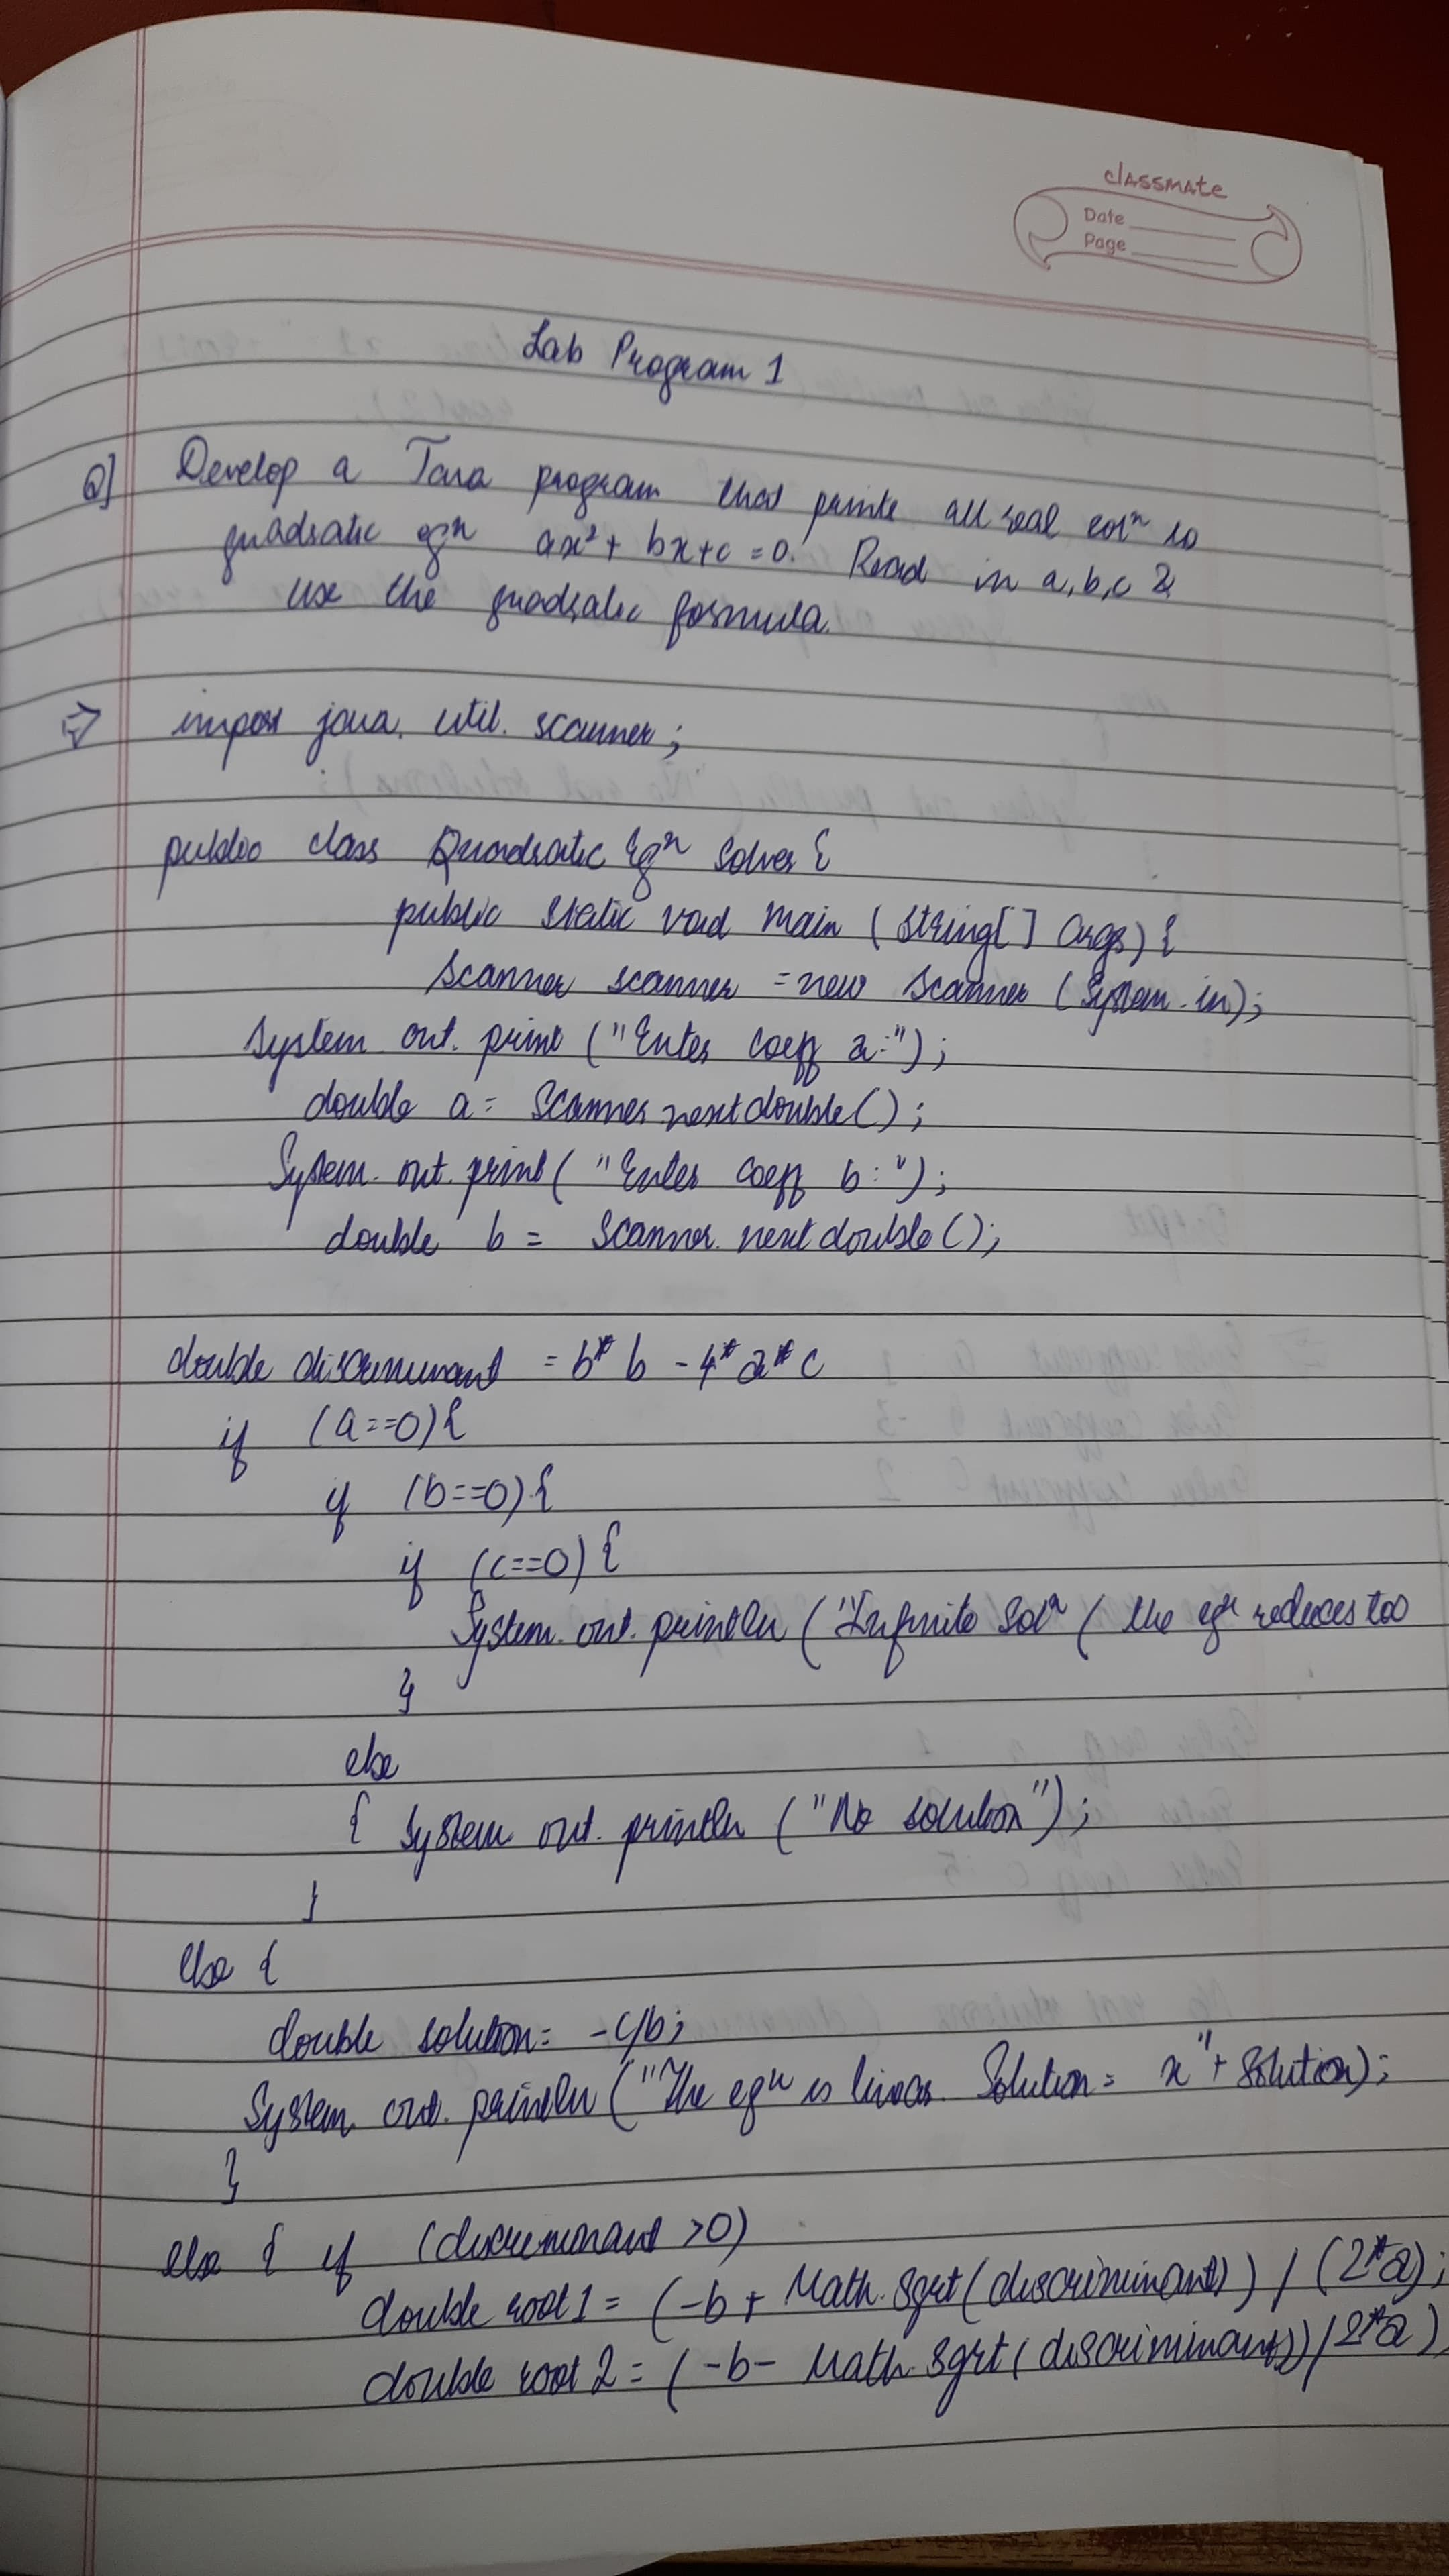 classmate
Date
Page
Lab Program 1
Q] Develop a Java program that prints all real solⁿ to
quadratic eqⁿ ax² + bx + c = 0. Read in a, b, c &
use the quadratic formula.
⇒ import java. util. scanner;
public class Quadratic Eqⁿ Solver {
public static void main (String[] args) {
Scanner scanner = new Scanner (System.in);
System. out. print ("Enter coeff a:");
double a = Scanner nextdouble();
System. out. print ("Enter coeff b:");
double b = Scanner. nextdouble();
double discriminant = b* b - 4* a* c
if (a==0) {
if (b==0) {
if (c==0) {
System. out. println ("Infinite Solⁿ ( the eqⁿ reduces too
}
else
{ System out. println ("No solution");
}
else {
double solution = -c/b;
System. out. println ("The eqⁿ is linear. Solution = x" + Solution);
}
else { if (discriminant >0)
double root1 = (-b + Math. Sqrt (discriminant)) / (2*a);
double root 2 = (-b - Math. Sqrt (discriminant)) / 2*a)